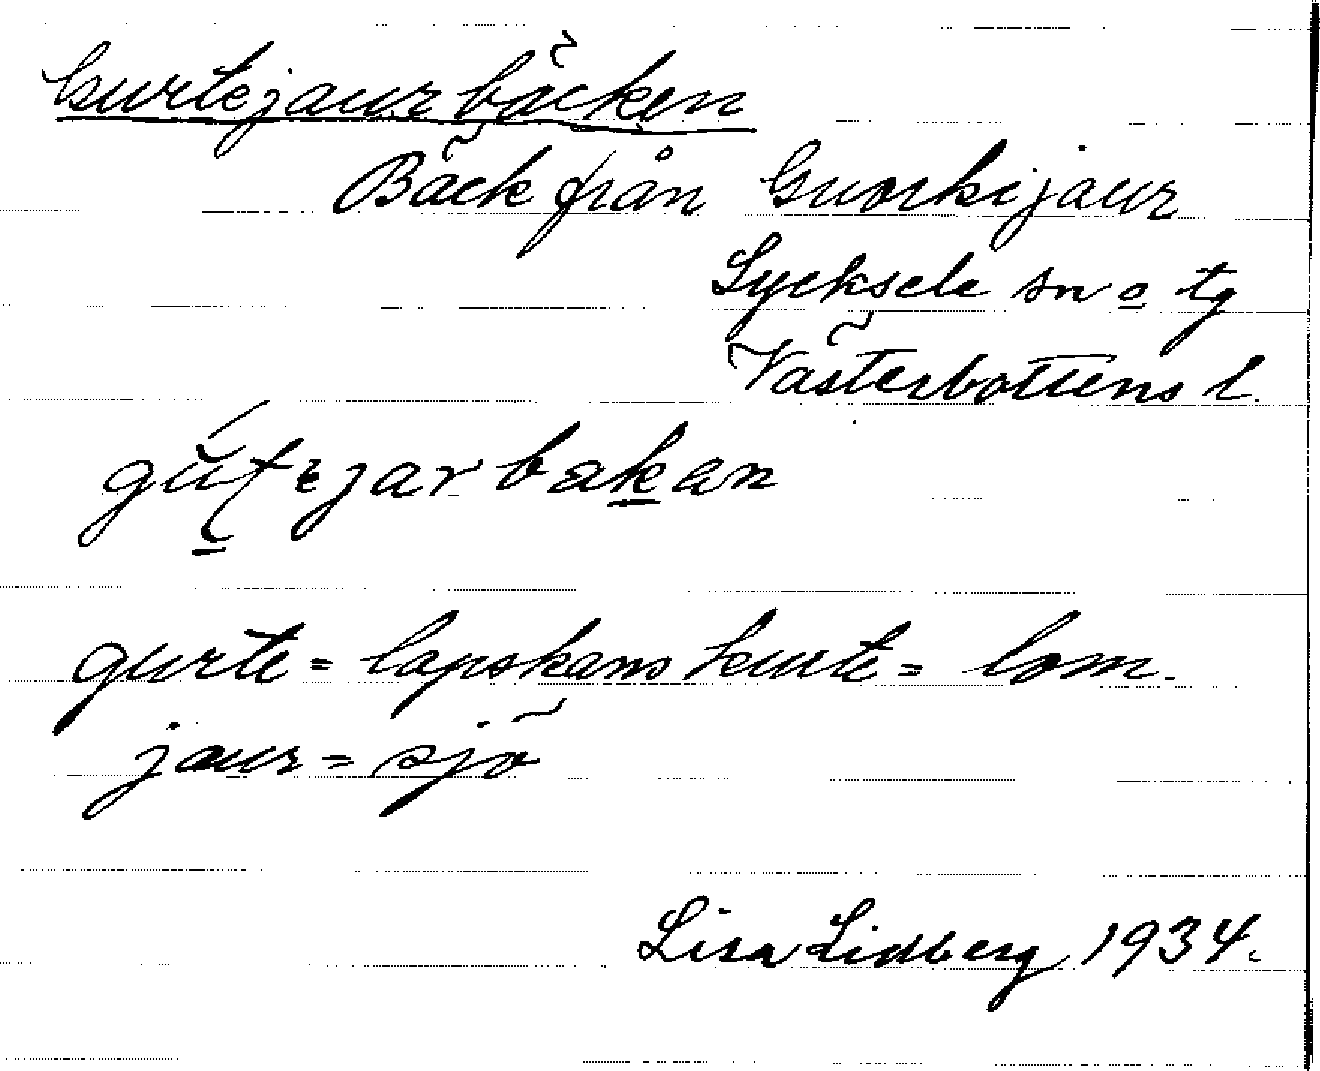 Gurtejaurbäcken
Bäck från Guorkijaur
Lycksele sn o tg
Västerbottens l.
gurte = lapskans kurte = lom.
jaur = sjö
Lisa Lidberg 1934.